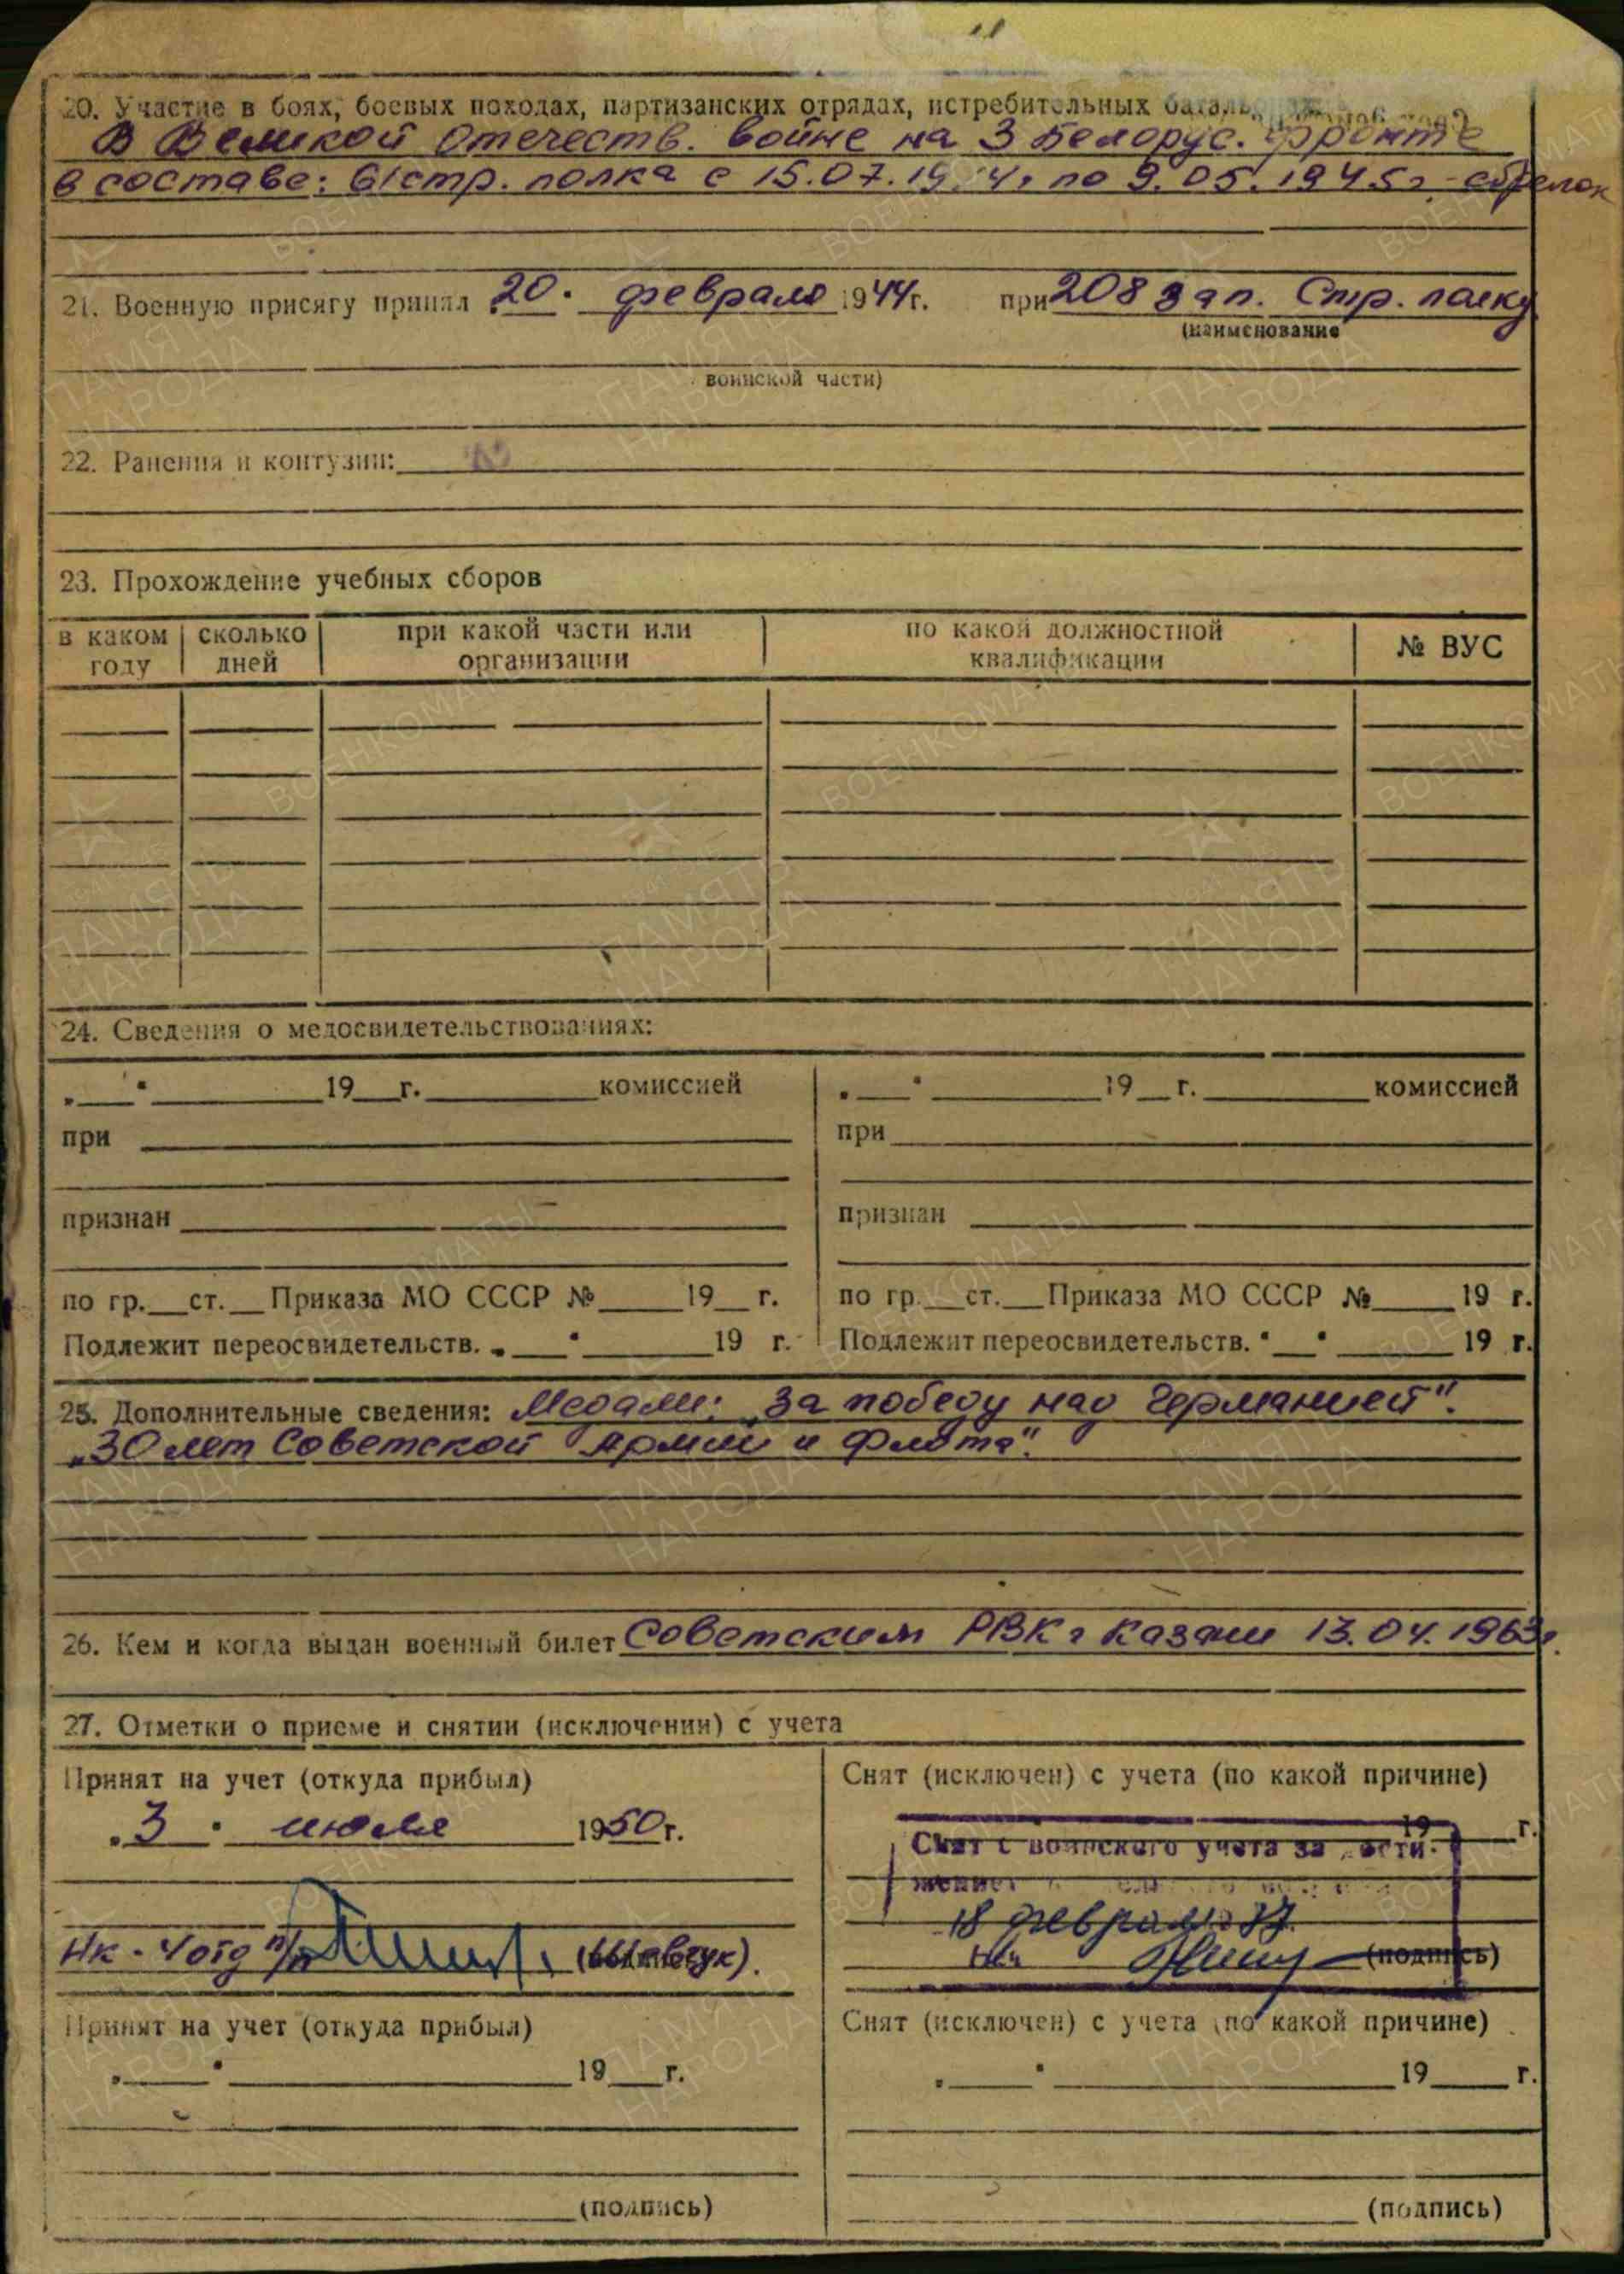 20. Участие в боях, боевых походах, партизанских отрядах, истребительных
В Великой Отечеств. войне на 3 Белорус. фронте
в составе: 61 стр. полка с 15.07. по 9.05.1945г - стрелок
21. Военную присягу принял 20. февраля 1944г. при 208 зап. Стр. полку
(наименование
воинской части)
22. Ранения и контузии:
23. Прохождение учебных сборов
в каком году | сколько дней | при какой части или организации | по какой должностной квалификации | № ВУС
24. Сведения о медосвидетельствованиях:
19 г. комиссией
при
признан
по гр. ст. Приказа МО СССР № 19 г.
Подлежит переосвидетельств. 19 г.
19 г. комиссией
при
признан
по гр. ст. Приказа МО СССР № 19 г.
Подлежит переосвидетельств. 19 г.
25. Дополнительные сведения: Медали: „За победу над Германией".
„30 лет Советской Армии и Флота".
26. Кем и когда выдан военный билет Советским РВК г Казани 13.04.1963г.
27. Отметки о приеме и снятии (исключении) с учета
Принят на учет (откуда прибыл)
3 июля 1950г.
Нк. 4 отд п/п (Шевчук).
Снят (исключен) с учета (по какой причине)
19 г.
Снят с воинского учета за дости-
жение
18 февраля 87
(подпись)
Принят на учет (откуда прибыл)
19 г.
(подпись)
Снят (исключен) с учета (по какой причине)
19 г.
(подпись)
ПАМЯТЬ
НАРОДА
ВОЕНКОМАТЫ